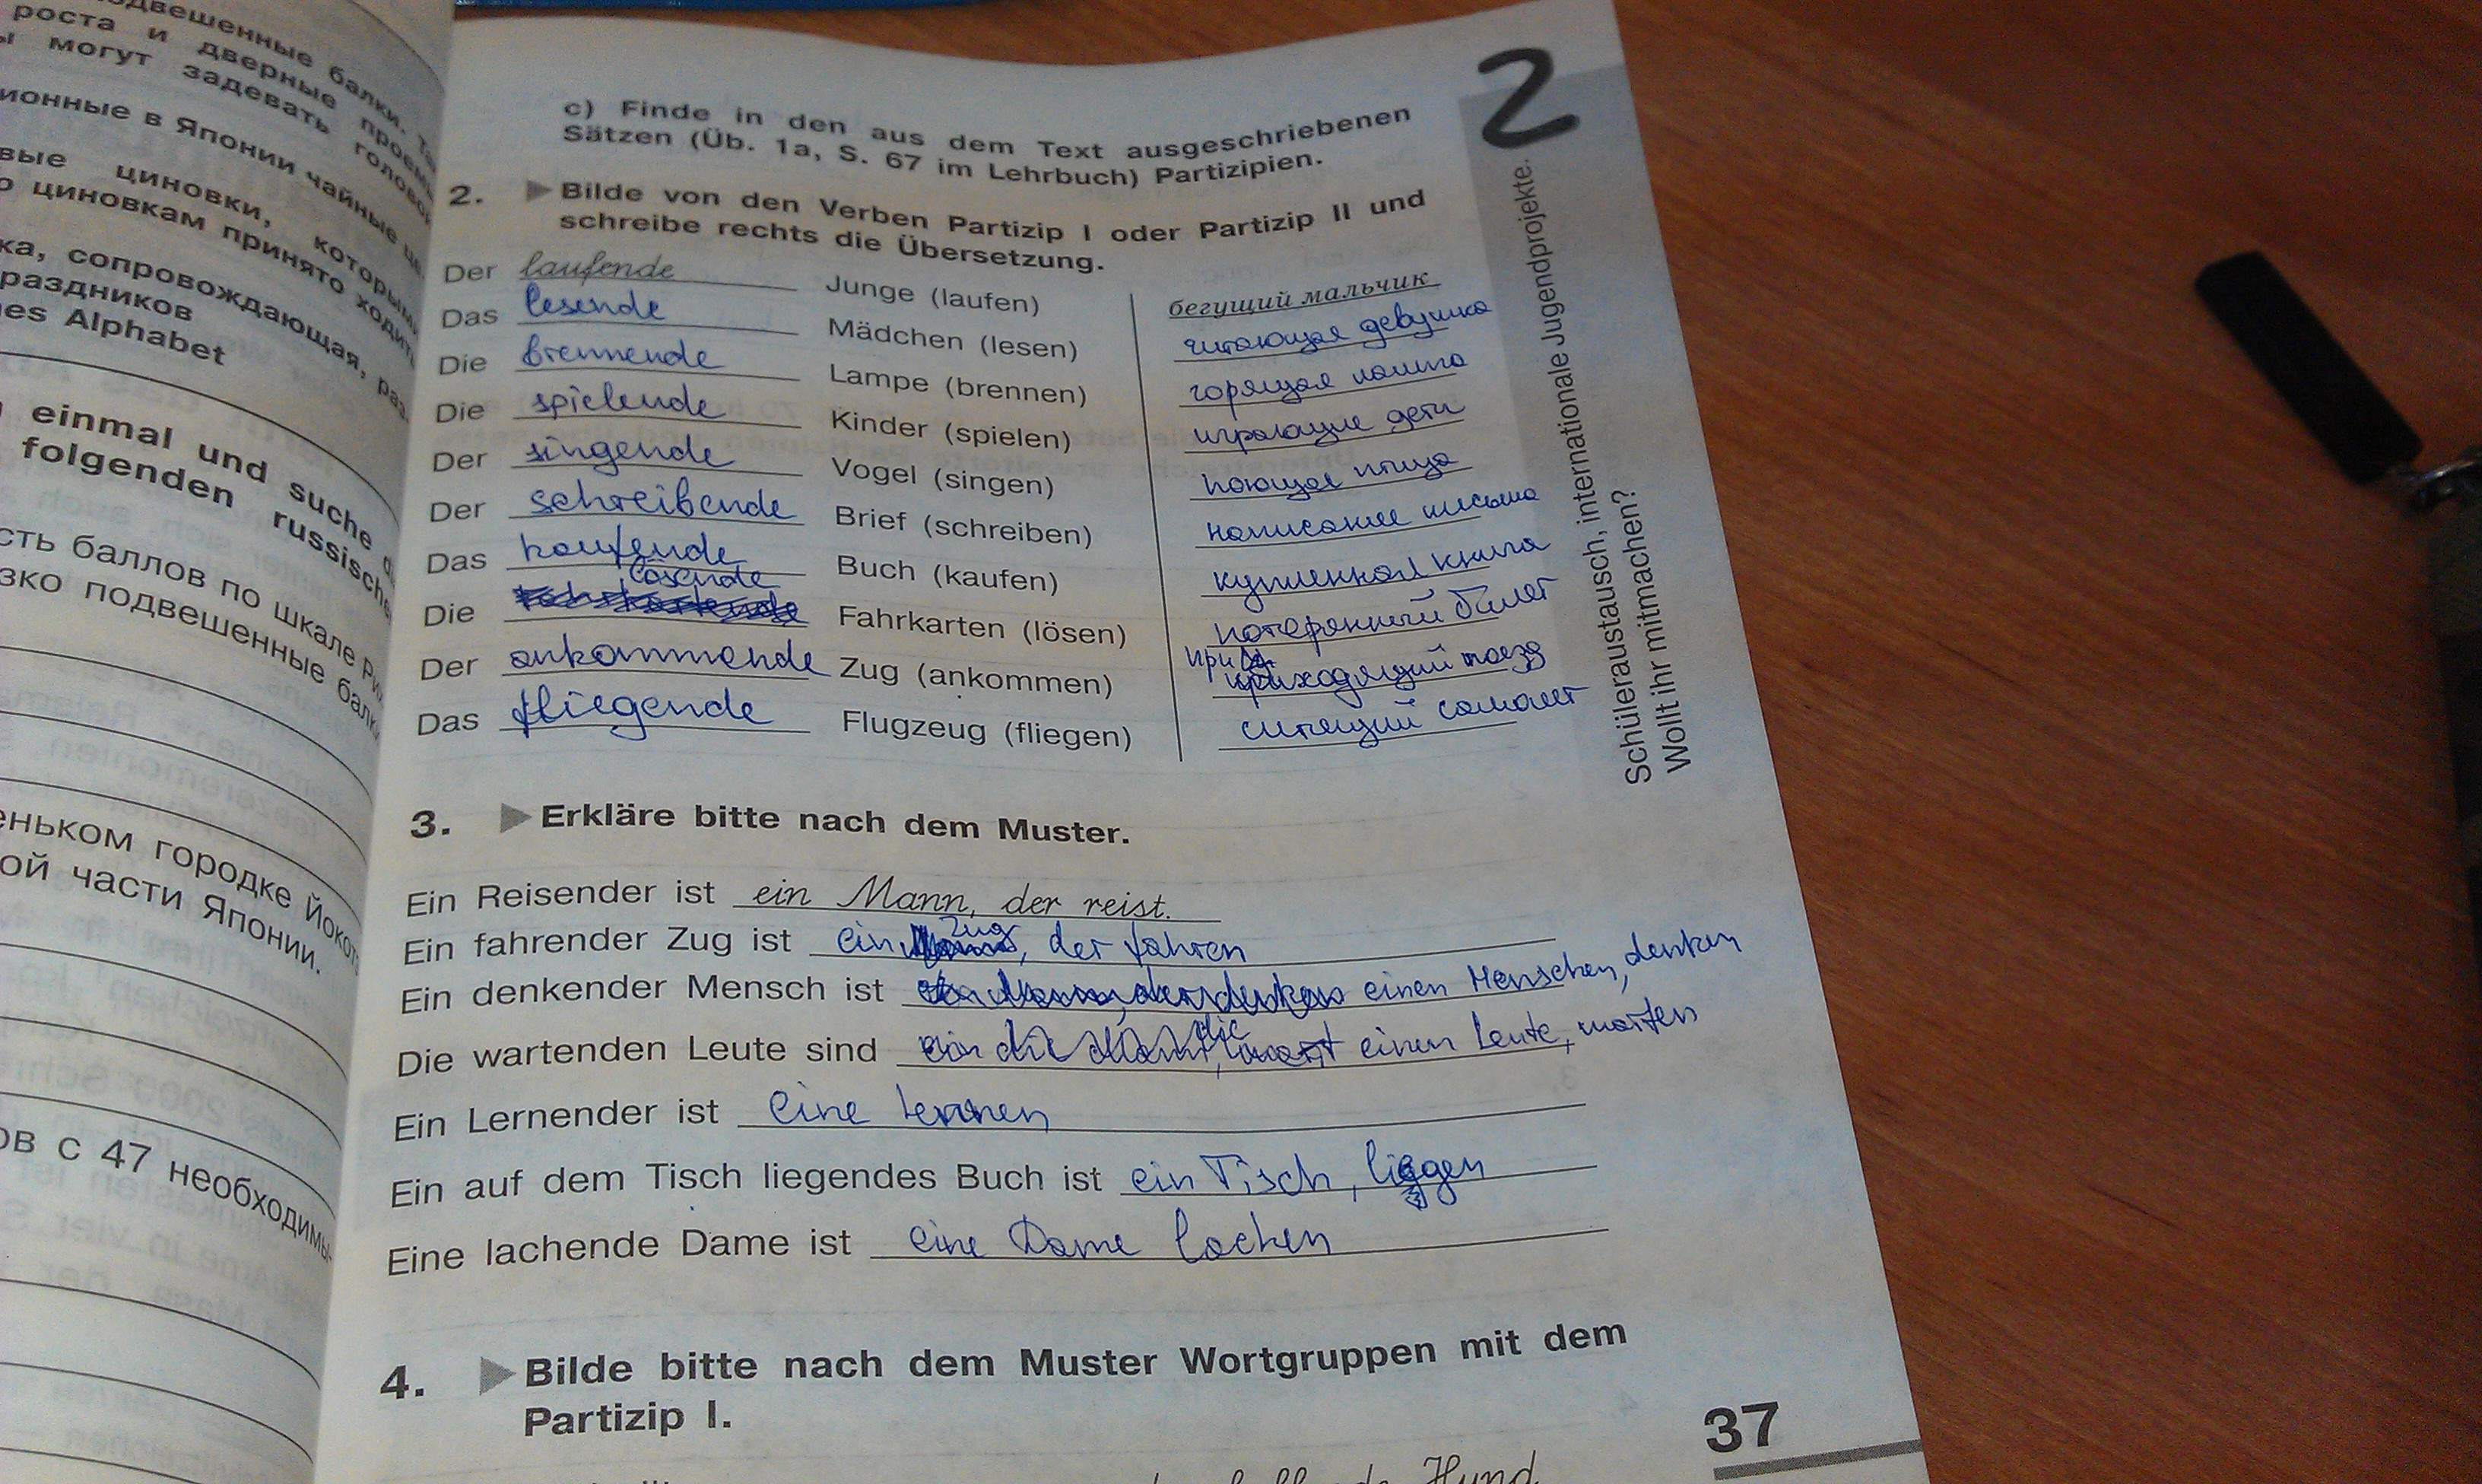 подвешенные балки. Та
роста и дверные проемы
ы могут задевать голово
ионные в Японии чайные це
вые циновки, которым
о циновкам принято ходить
ка, сопровождающая, раз
раздников
es Alphabet
einmal und suche d
folgenden russische
сть баллов по шкале Ри
зко подвешенные балк
еньком городке Йокот
ой части Японии.
ов с 47 необходимы
2
c) Finde in den aus dem Text ausgeschriebenen
Sätzen (Üb. 1a, S. 67 im Lehrbuch) Partizipien.
2. Bilde von den Verben Partizip I oder Partizip II und
schreibe rechts die Übersetzung.
Der laufende Junge (laufen) бегущий мальчик
Das lesende Mädchen (lesen) читающая девушка
Die brennende Lampe (brennen) горящая лампа
Die spielende Kinder (spielen) играющие дети
Der singende Vogel (singen) поющая птица
Der schreibende Brief (schreiben) написание письма
Das kaufende Buch (kaufen) купленная книга
Die lösende Fahrkarten (lösen) потерянный билет
Der ankommende Zug (ankommen) приходящий поезд
Das fliegende Flugzeug (fliegen) самолет
Schüleraustausch, internationale Jugendprojekte.
Wollt ihr mitmachen?
3. Erkläre bitte nach dem Muster.
Ein Reisender ist ein Mann, der reist.
Ein fahrender Zug ist ein Zug, der fahren
Ein denkender Mensch ist einen Menschen, denken
Die wartenden Leute sind einen Leute, warten
Ein Lernender ist eine lernen
Ein auf dem Tisch liegendes Buch ist ein Tisch, liegen
Eine lachende Dame ist eine Dame lachen
4. Bilde bitte nach dem Muster Wortgruppen mit dem
Partizip I.
Hund
37